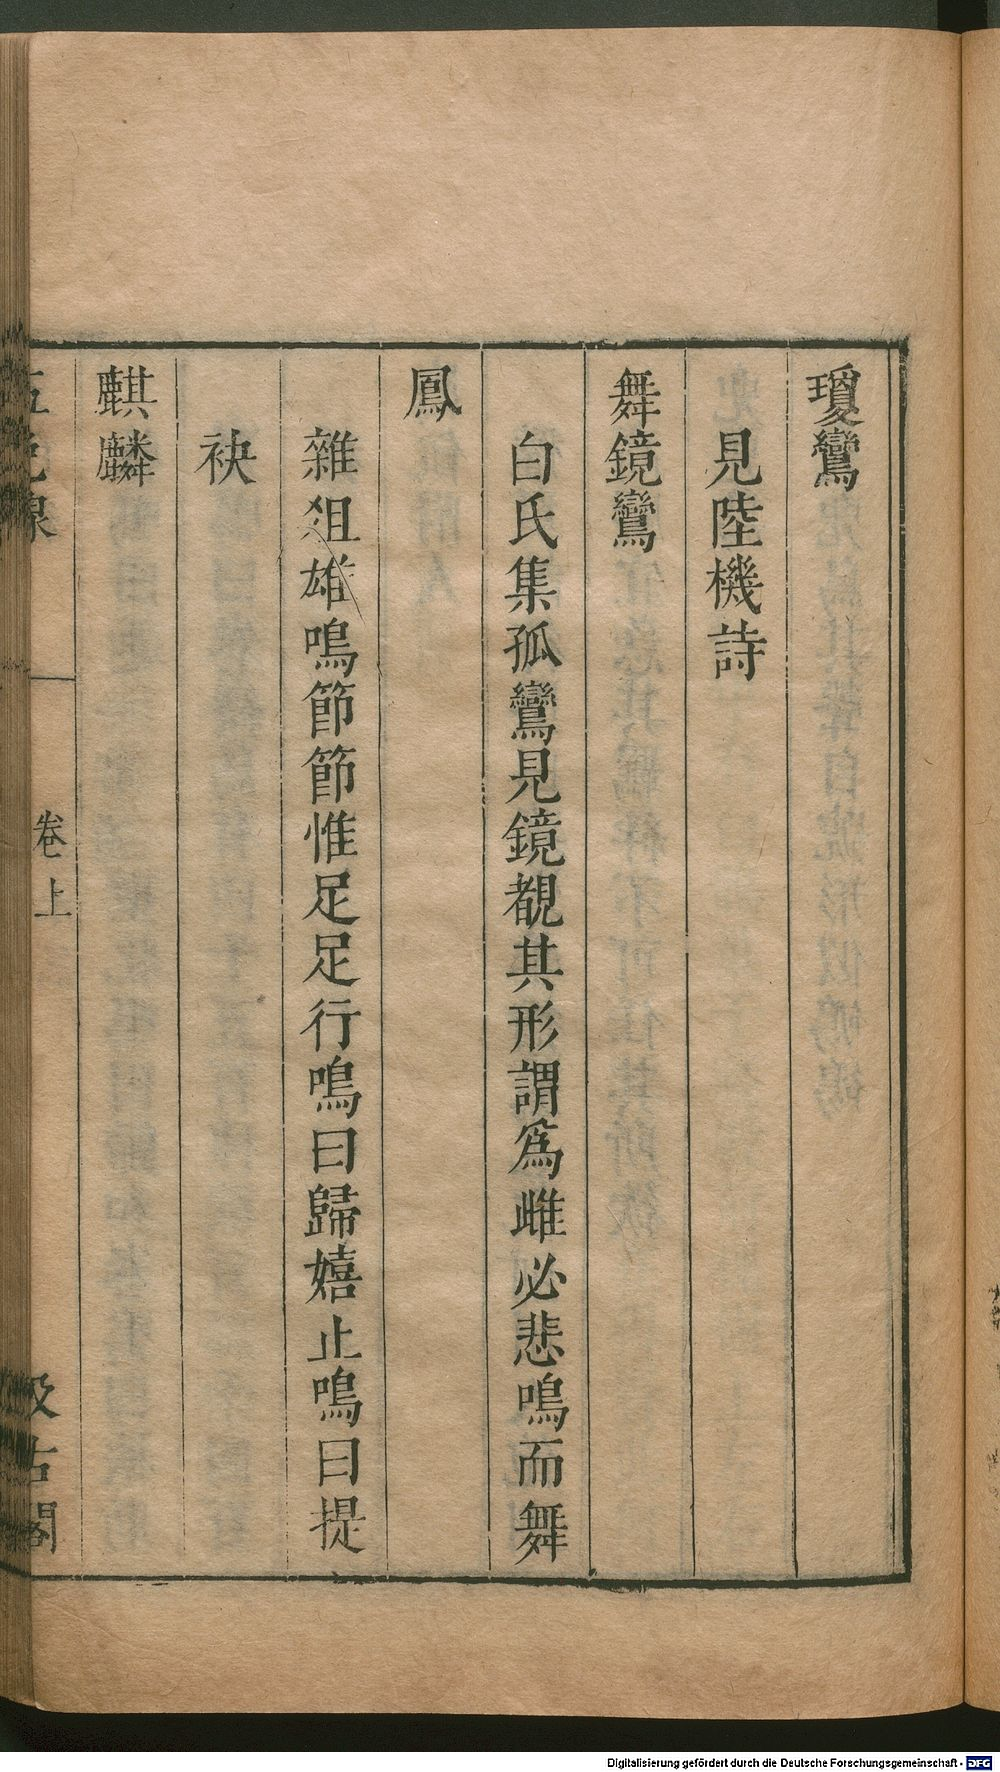 瓊鸞
見陸機詩
舞鏡鸞
白氏集孤鸞見鏡覩其形謂爲雌必悲鳴而舞
鳳
雜俎雄鳴節節惟足足行鳴曰歸嬉止鳴曰提
袂
麒麟
五色線
卷上
汲古閣
Digitalisierung gefördert durch die Deutsche Forschungsgemeinschaft - DFG